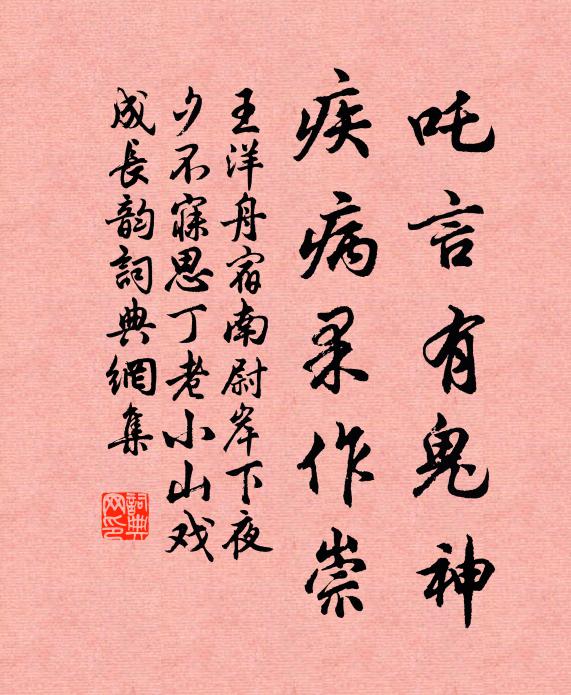 吒言有鬼神
疾病果作祟
王洋舟宿南尉岸下夜
少不寐思丁老小山戏
成長韵詞典網集
詞典网印